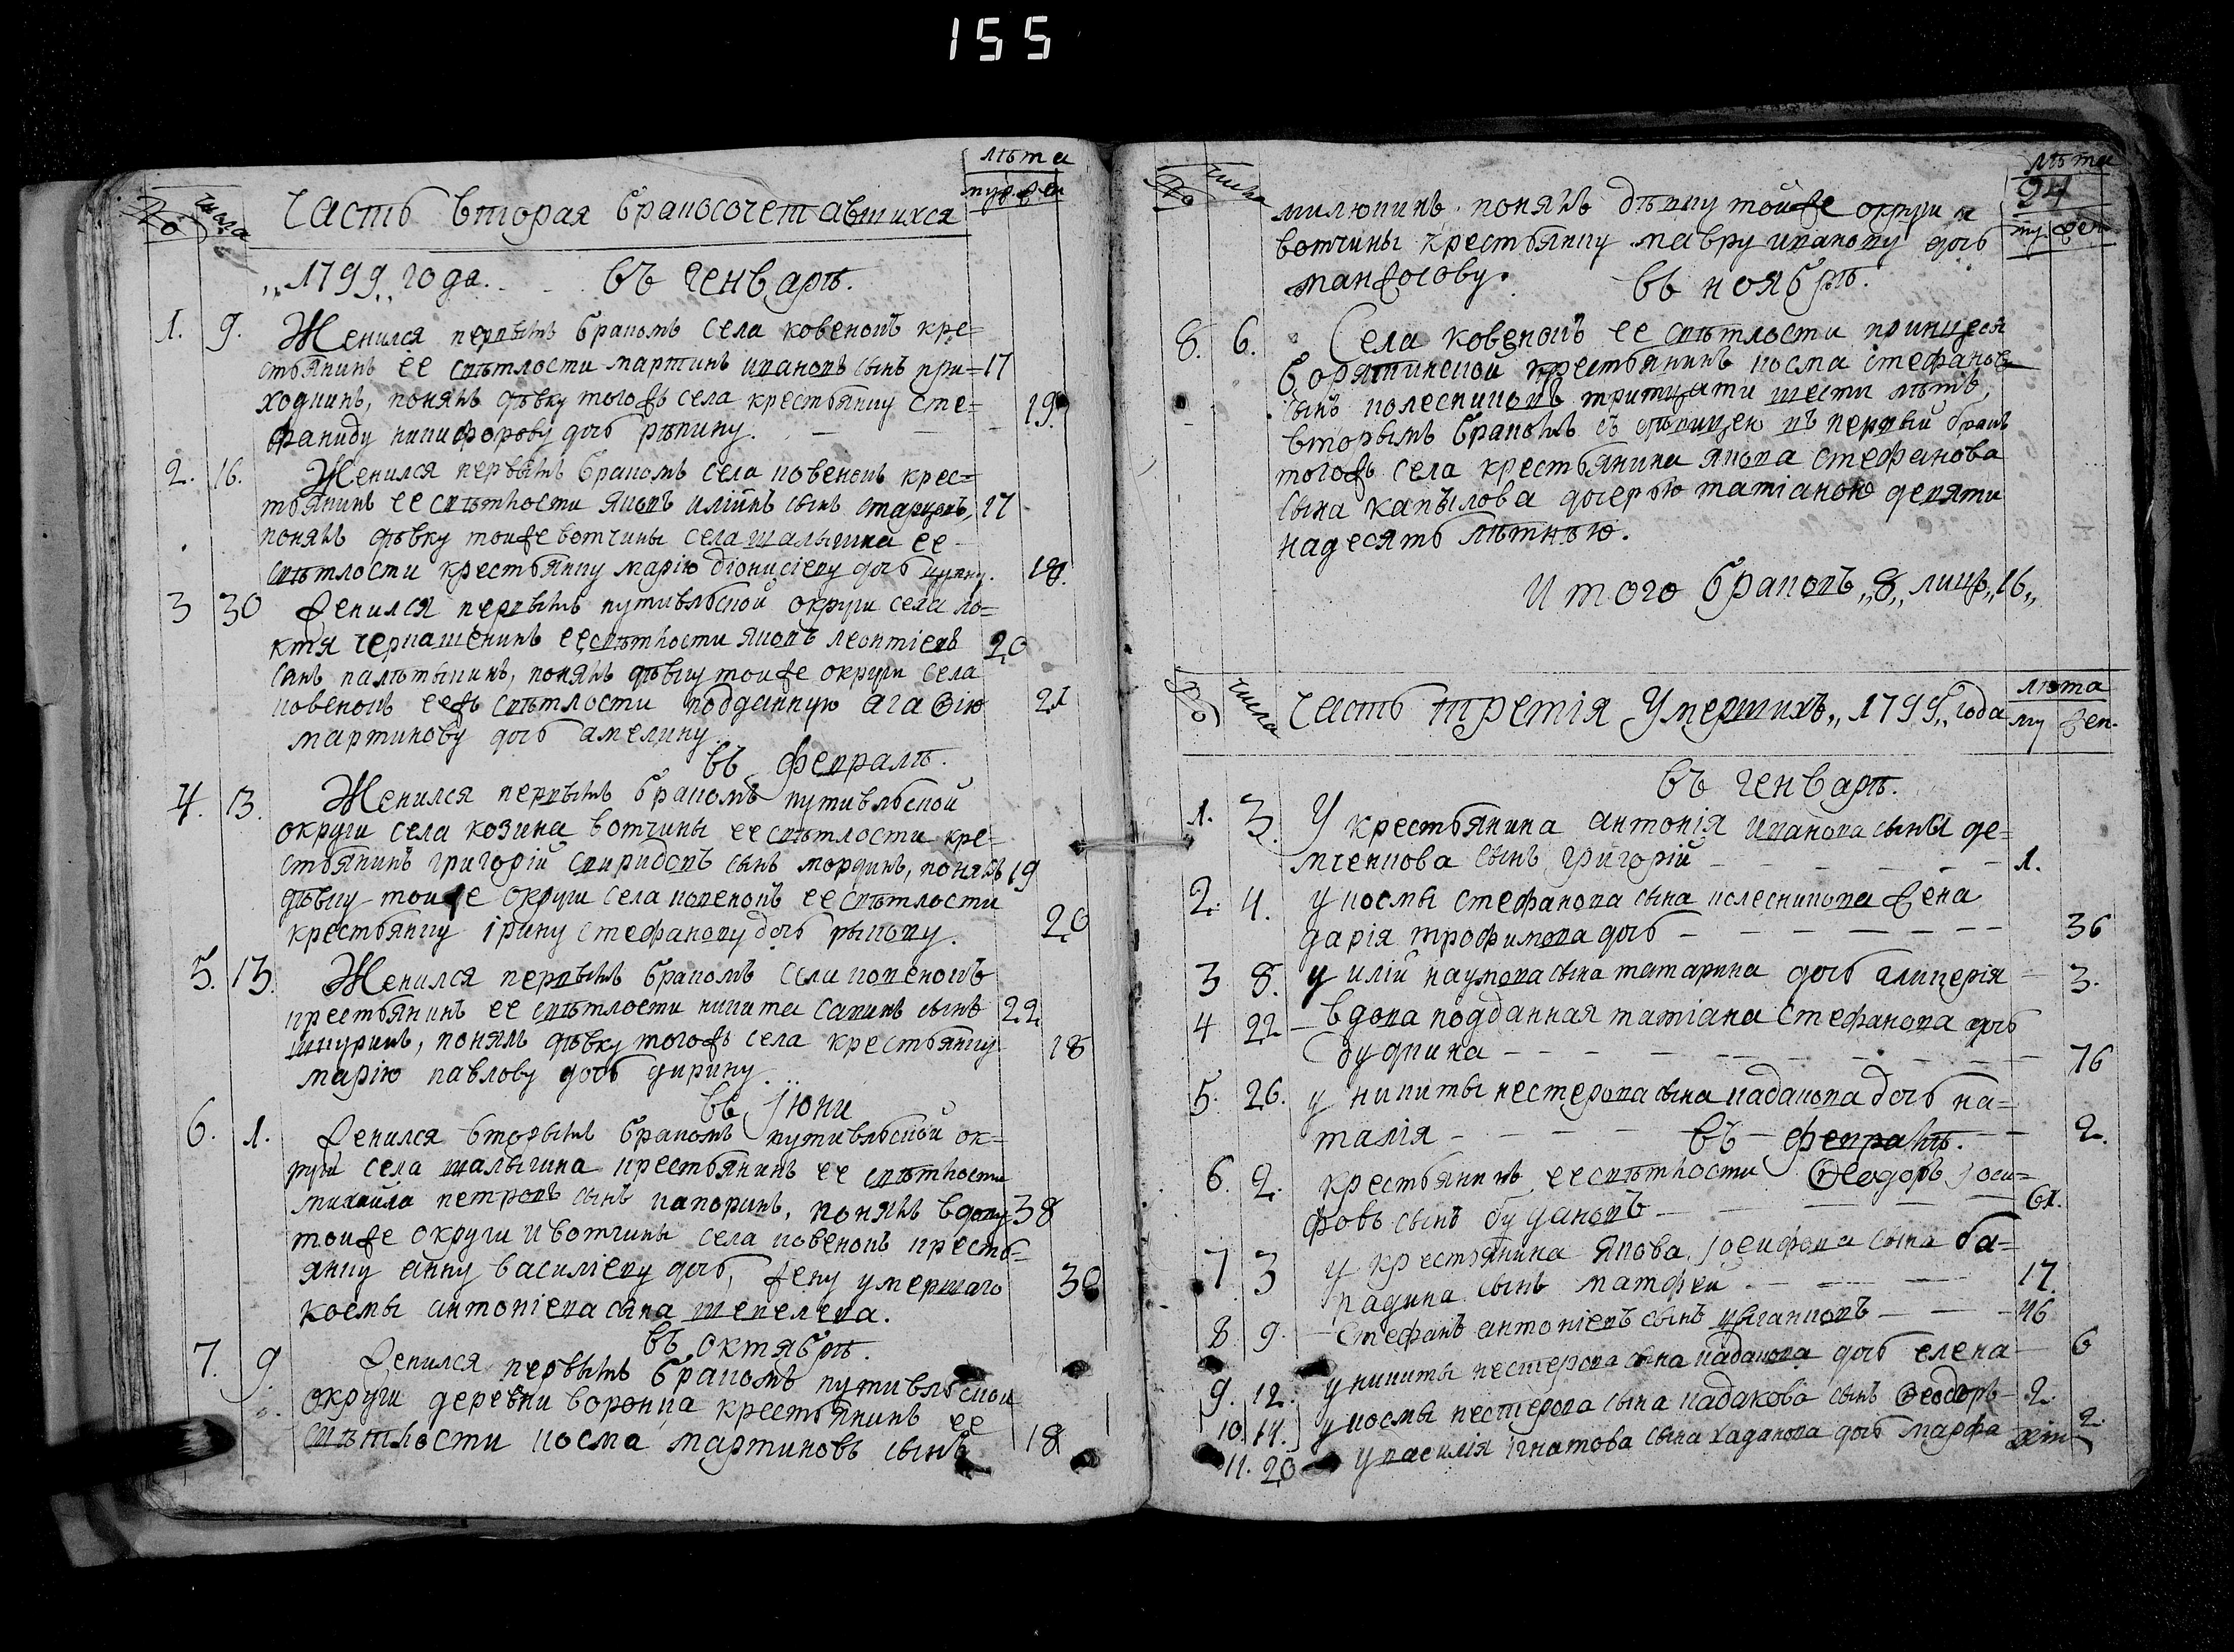 155
лѣта
муж. жен
№
числа
Часть вторая бракосочетавшихся
„1799„ года. въ генварѣ.
1. 9. Женился первымъ бракомъ села ковенокъ кре=
стьянинъ ее свѣтлости мартинъ ивановъ сынъ при= 17
ходкинъ, понялъ дѣвку тогожъ села крестьянку сте= 19
фаниду никифорову дочь рѣпину.
2. 16. Женился первымъ бракомъ села ковенокъ крес=
тьянинъ ее свѣтлости яковъ иліинъ сынъ старцевъ, 17
понялъ дѣвку тоижe вотчины села шалыгина ее
свѣтлости крестьянку марію діонисіеву дочь 18.
3 30 женился первымъ путивльской округи села ло=
ктя черкашенинъ ее свѣтлости яковъ леонтіевъ 20
сынъ понялъ дѣвку тоиже округи села
ковенокъ ееже свѣтлости подданную агаѳію 21
мартинову дочь амелину.
въ февралѣ.
4. 13. Женился первымъ бракомъ путивльской
округи села козина вотчины ее свѣтлости кре=
стьянинъ григорій спиридовъ сынъ мордикъ, понялъ 19
дѣвку тоиже округи села ковенокъ ее свѣтлости
крестьянку ірину стефанову дочь рыкову. 20
5. 13. Женился первымъ бракомъ села ковенокъ
крестьянинъ ее свѣтлости никита савинъ сынъ 22
шкуринъ, понялъ дѣвку тогожъ села крестьянку 18
марію павлову дочь дирину.
въ Іюни
6. 1. женился вторымъ бракомъ путивльской ок=
руги села шалыгина крестьянинъ ее свѣтлости
михайла петровъ сынъ понялъ вдову 38
тоиже округи и вотчины села ковенокъ кресть=
янку анну василіеву дочь, жену умершаго 30
космы антоніева сына шепелева.
въ октябрѣ.
7. 9. женился первымъ бракомъ путивльской
округи деревни воронка крестьянинъ ее
свѣтлости косма мартиновъ сынъ 18
№
числа
лѣта
94
му. жен
милюкинъ понялъ дѣвку тойже округи и
вотчины крестьянку мавру иванову дочь
манжосову.
въ ноябрѣ.
8. 6. Села ковенокъ ее свѣтлости принцеси
борятинской крестьянинъ косма стефановъ
сынъ колесниковъ тритцати шести лѣтъ,
вторымъ бракомъ съ дѣвицею въ первый бракъ
тогожъ села крестьянина якова стефанова
сына капылова дочерью татіаною девяти
надесять лѣтнѣю.
Итого браковъ „8„ лицъ „16„
№
числа
Часть третія Умершихъ „1799„ года
лѣта
му жен.
въ генварѣ.
1. 3. У крестьянина антонія иванова сына де=
мченкова сынъ григорій 1.
2. 4. у космы стефанова сына колесникова жена
дарія трофимова дочь 36
3 8. у иліи наумова сына татарина дочь гликерія 3.
4 22 вдова подданная татіана стефанова дочь
76
5. 26. у никиты нестерова сына кадакова дочь на=
талія 2.
въ февралѣ.
6. 2. крестьянинъ ее свѣтлости Ѳеодоръ іоси=
фовъ сынъ 61.
7 3 у крестьянина якова іосифова сына ба=
радина сынъ матфеи 17.
8. 9. Стефанъ антоніевъ сынъ цыганковъ 46
9. 12. у никиты нестерова сына кадакова дочь елена 6
10. 14. у космы нестерова сына кадакова сынъ Ѳеодоръ 2.
11. 20 у василія игнатова сына дочь марфа 2.